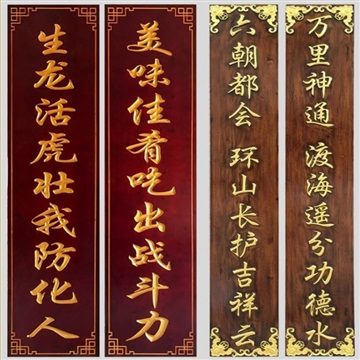 美味佳肴吃出战斗力
生龙活虎壮我防化人
万里神通 渡海遥分功德水
六朝都会 环山长护吉祥云